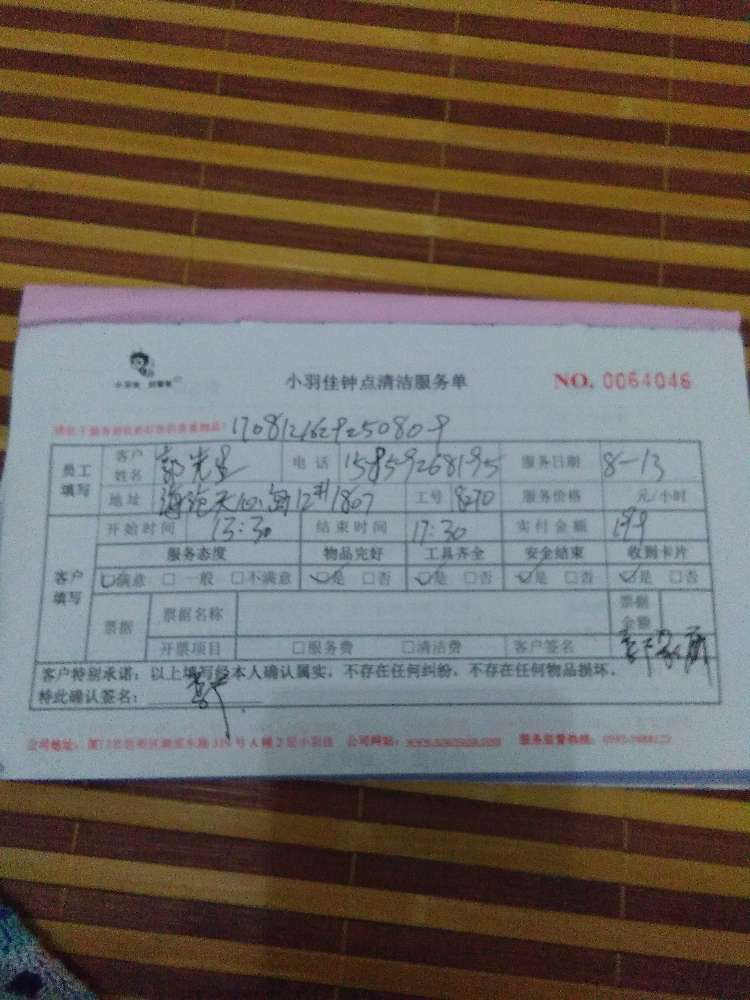 小羽佳钟点清洁服务单
NO. 0064046
员工填写 客户姓名 郭先生 电话 15859268195 服务日期 8-13
地址 12#1807 工号 8270 服务价格 元/小时
客户填写 开始时间 13:30 结束时间 17:30 实付金额 199
服务态度 物品完好 工具齐全 安全结束 收到卡片
☑满意 □一般 □不满意 ☑是 □否 ☑是 □否 ☑是 □否 ☑是 □否
票据 票据名称 票据金额
开票项目 □服务费 □清洁费 客户签名
客户特别承诺：以上填写经本人确认属实，不存在任何纠纷，不存在任何物品损坏。
特此确认签名：
公司地址： 号A幢2层小羽佳 公司网站： 服务监督热线：